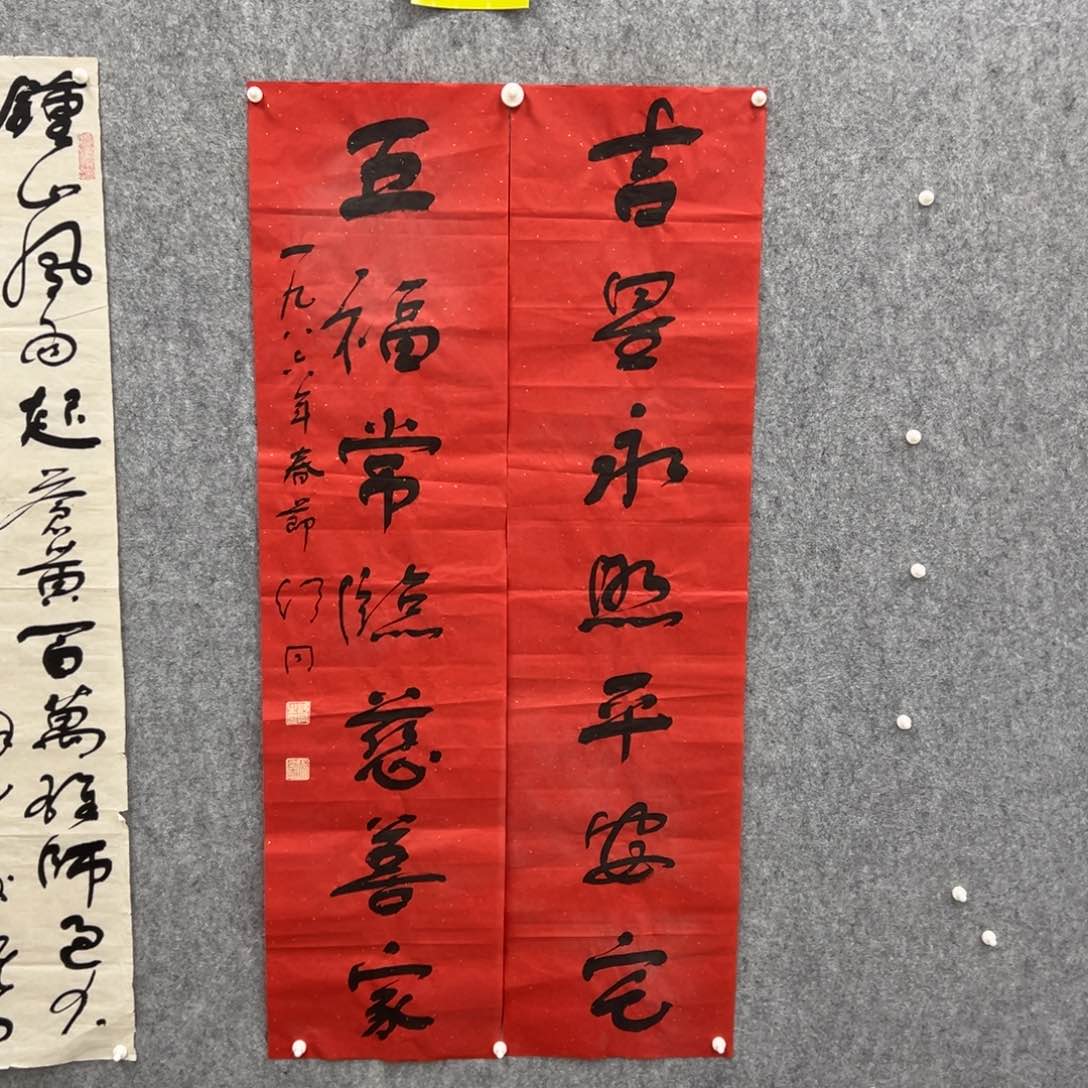 吉星永照平安宅
五福常臨慈善家
一九八六年春節
鍾山風雨起蒼黄百萬雄師過大